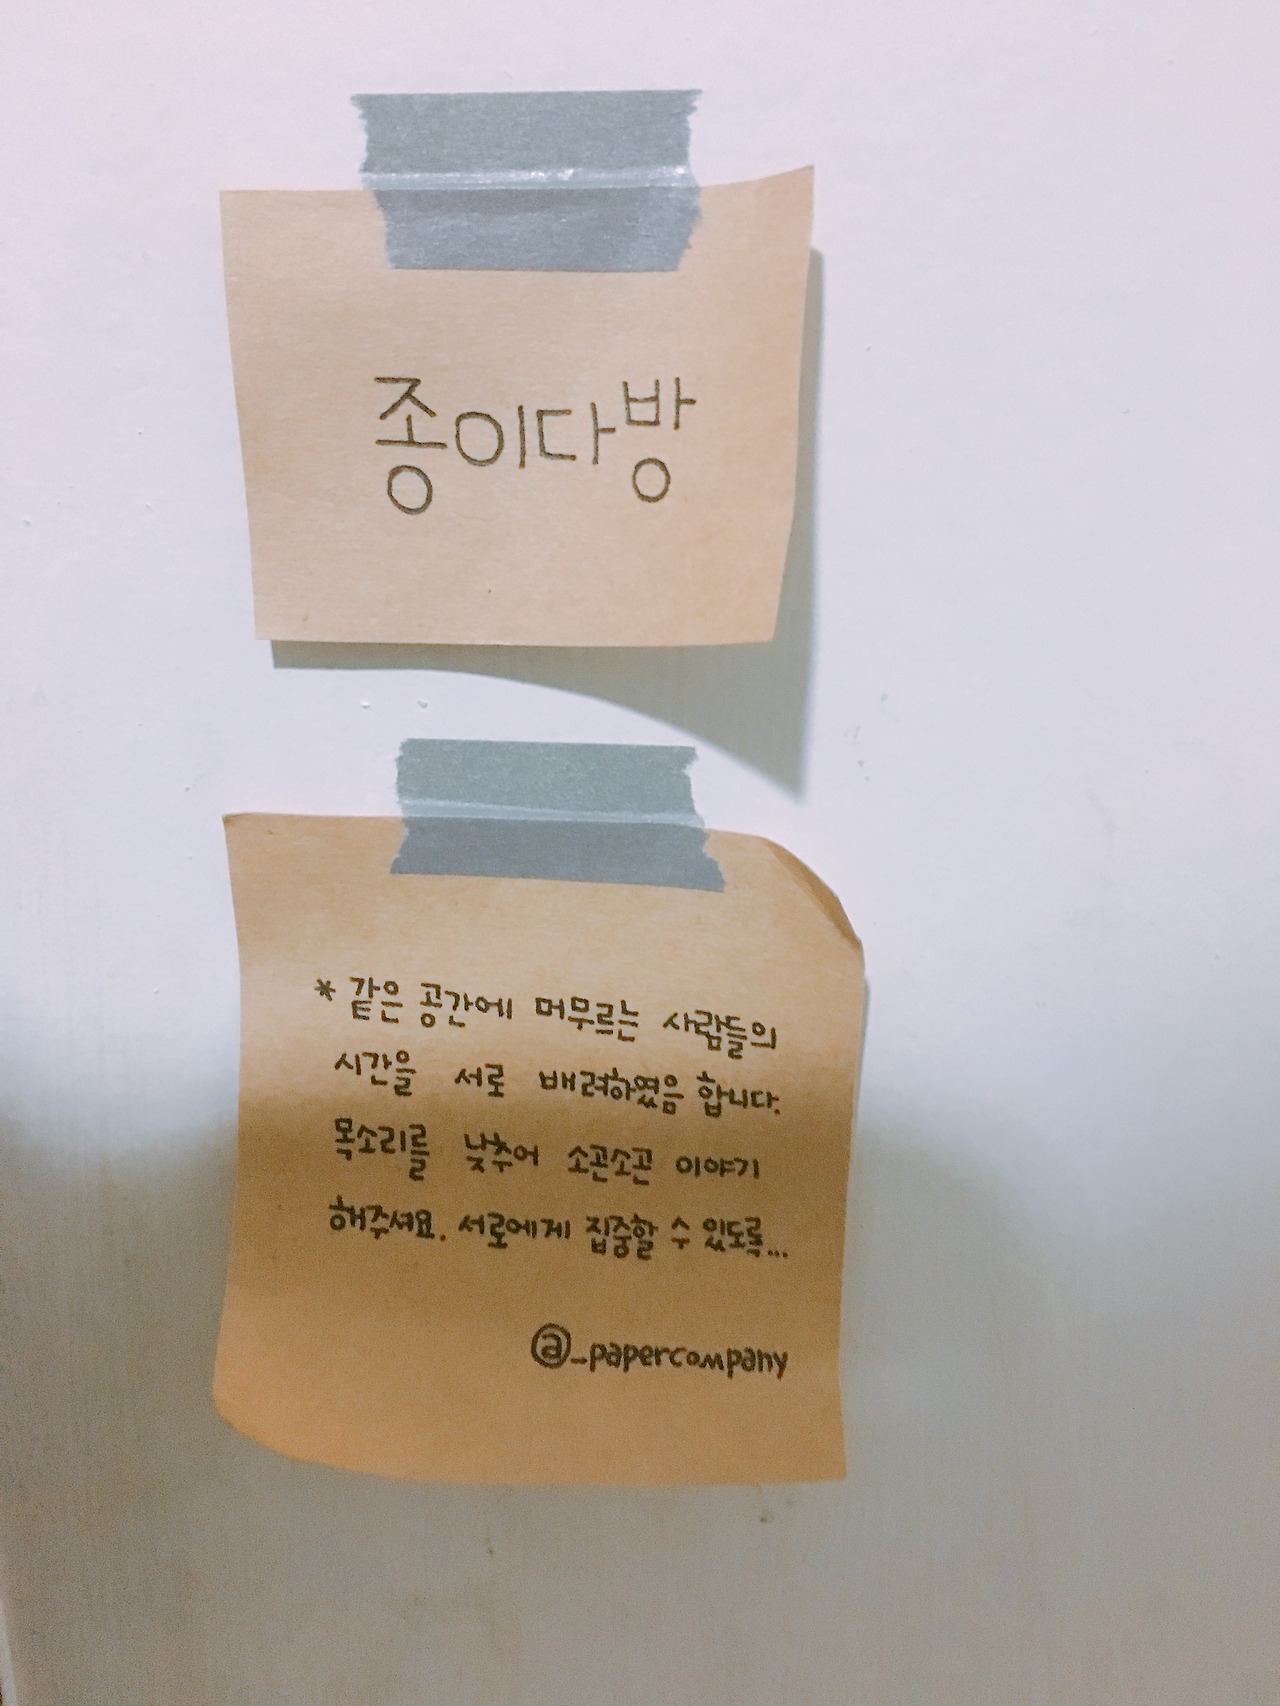 종이다방
* 같은 공간에 머무르는 사람들의
시간을 서로 배려하였음 합니다.
목소리를 낮추어 소곤소곤 이야기
해주셔요. 서로에게 집중할 수 있도록...
@_papercompany